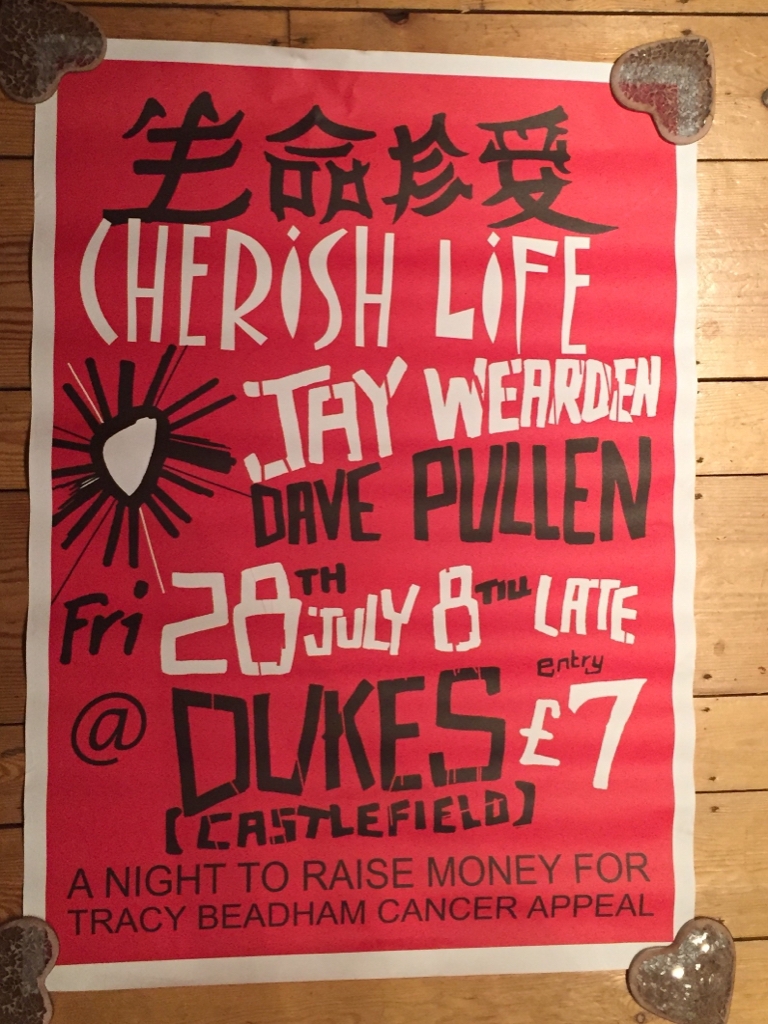 生命珍受
CHERiSH LiFE
JAY WEARDEN
DAVE PULLEN
Fri 28TH JULY 8 TILL LATE
entry
@ DUKES £7
[CASTLEFIELD]
A NIGHT TO RAISE MONEY FOR
TRACY BEADHAM CANCER APPEAL